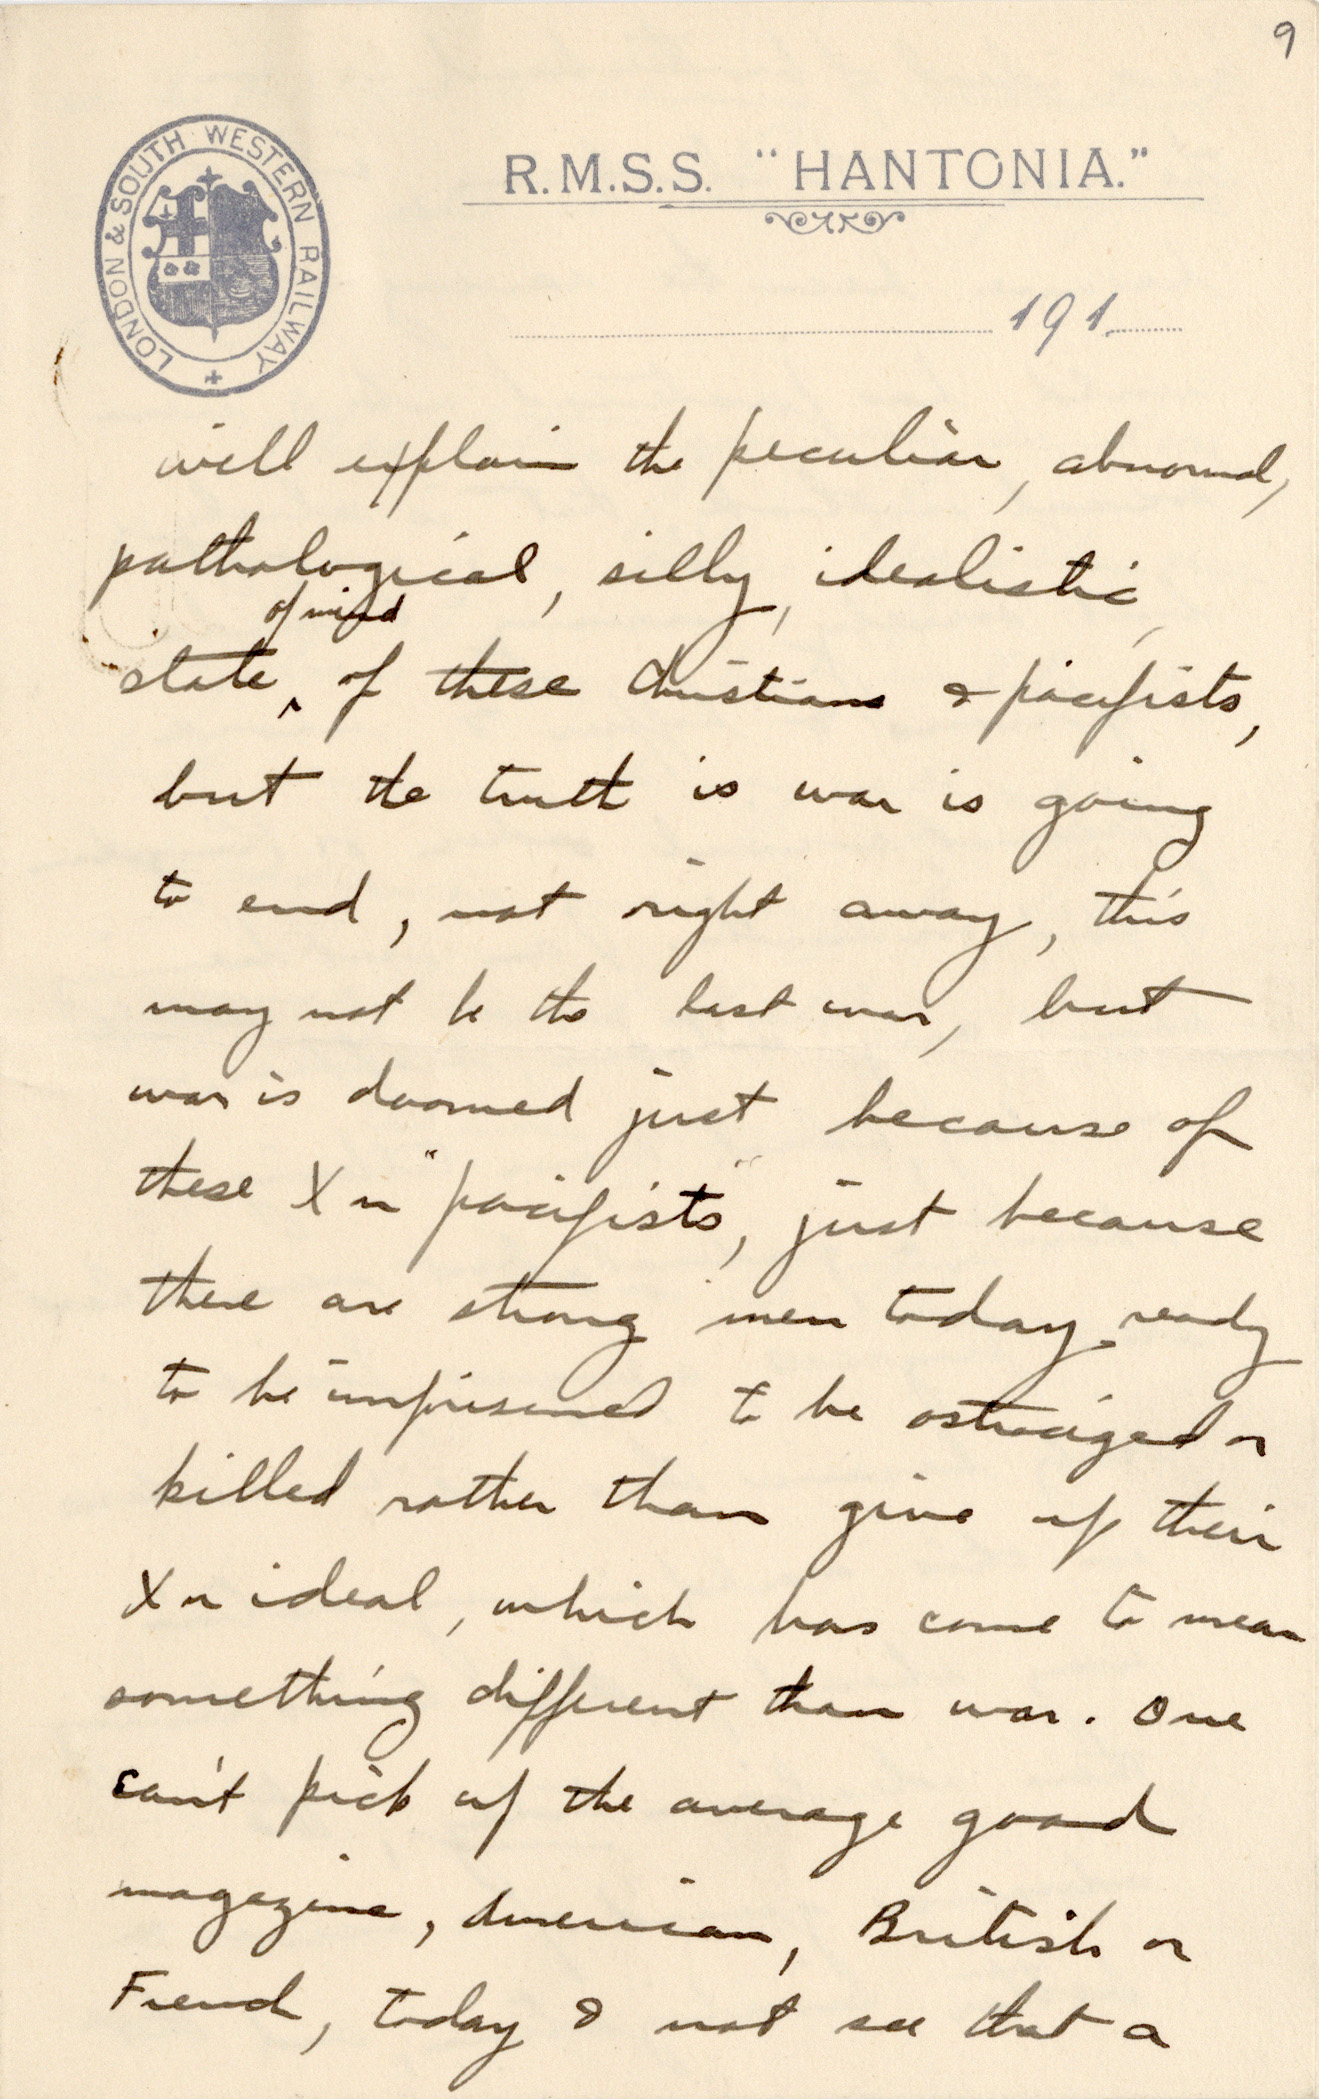 9
LONDON & SOUTH WESTERN RAILWAY
R.M.S.S. "HANTONIA."
191
will explain the peculiar, abnormal,
pathological, silly, idealistic,
of mind
state ^ of these Christians & pacifists,
but the truth is war is going
to end, not right away, this
may not be the last war, but
war is doomed just because of
these Xn "pacifists", just because
there are strong men today ready
to be imprisoned to be ostracized or
killed rather than give up their
Xn ideal, which has come to mean
something different than war. One
can't pick up the average good
magazine, American, British or
French, today & not see that a